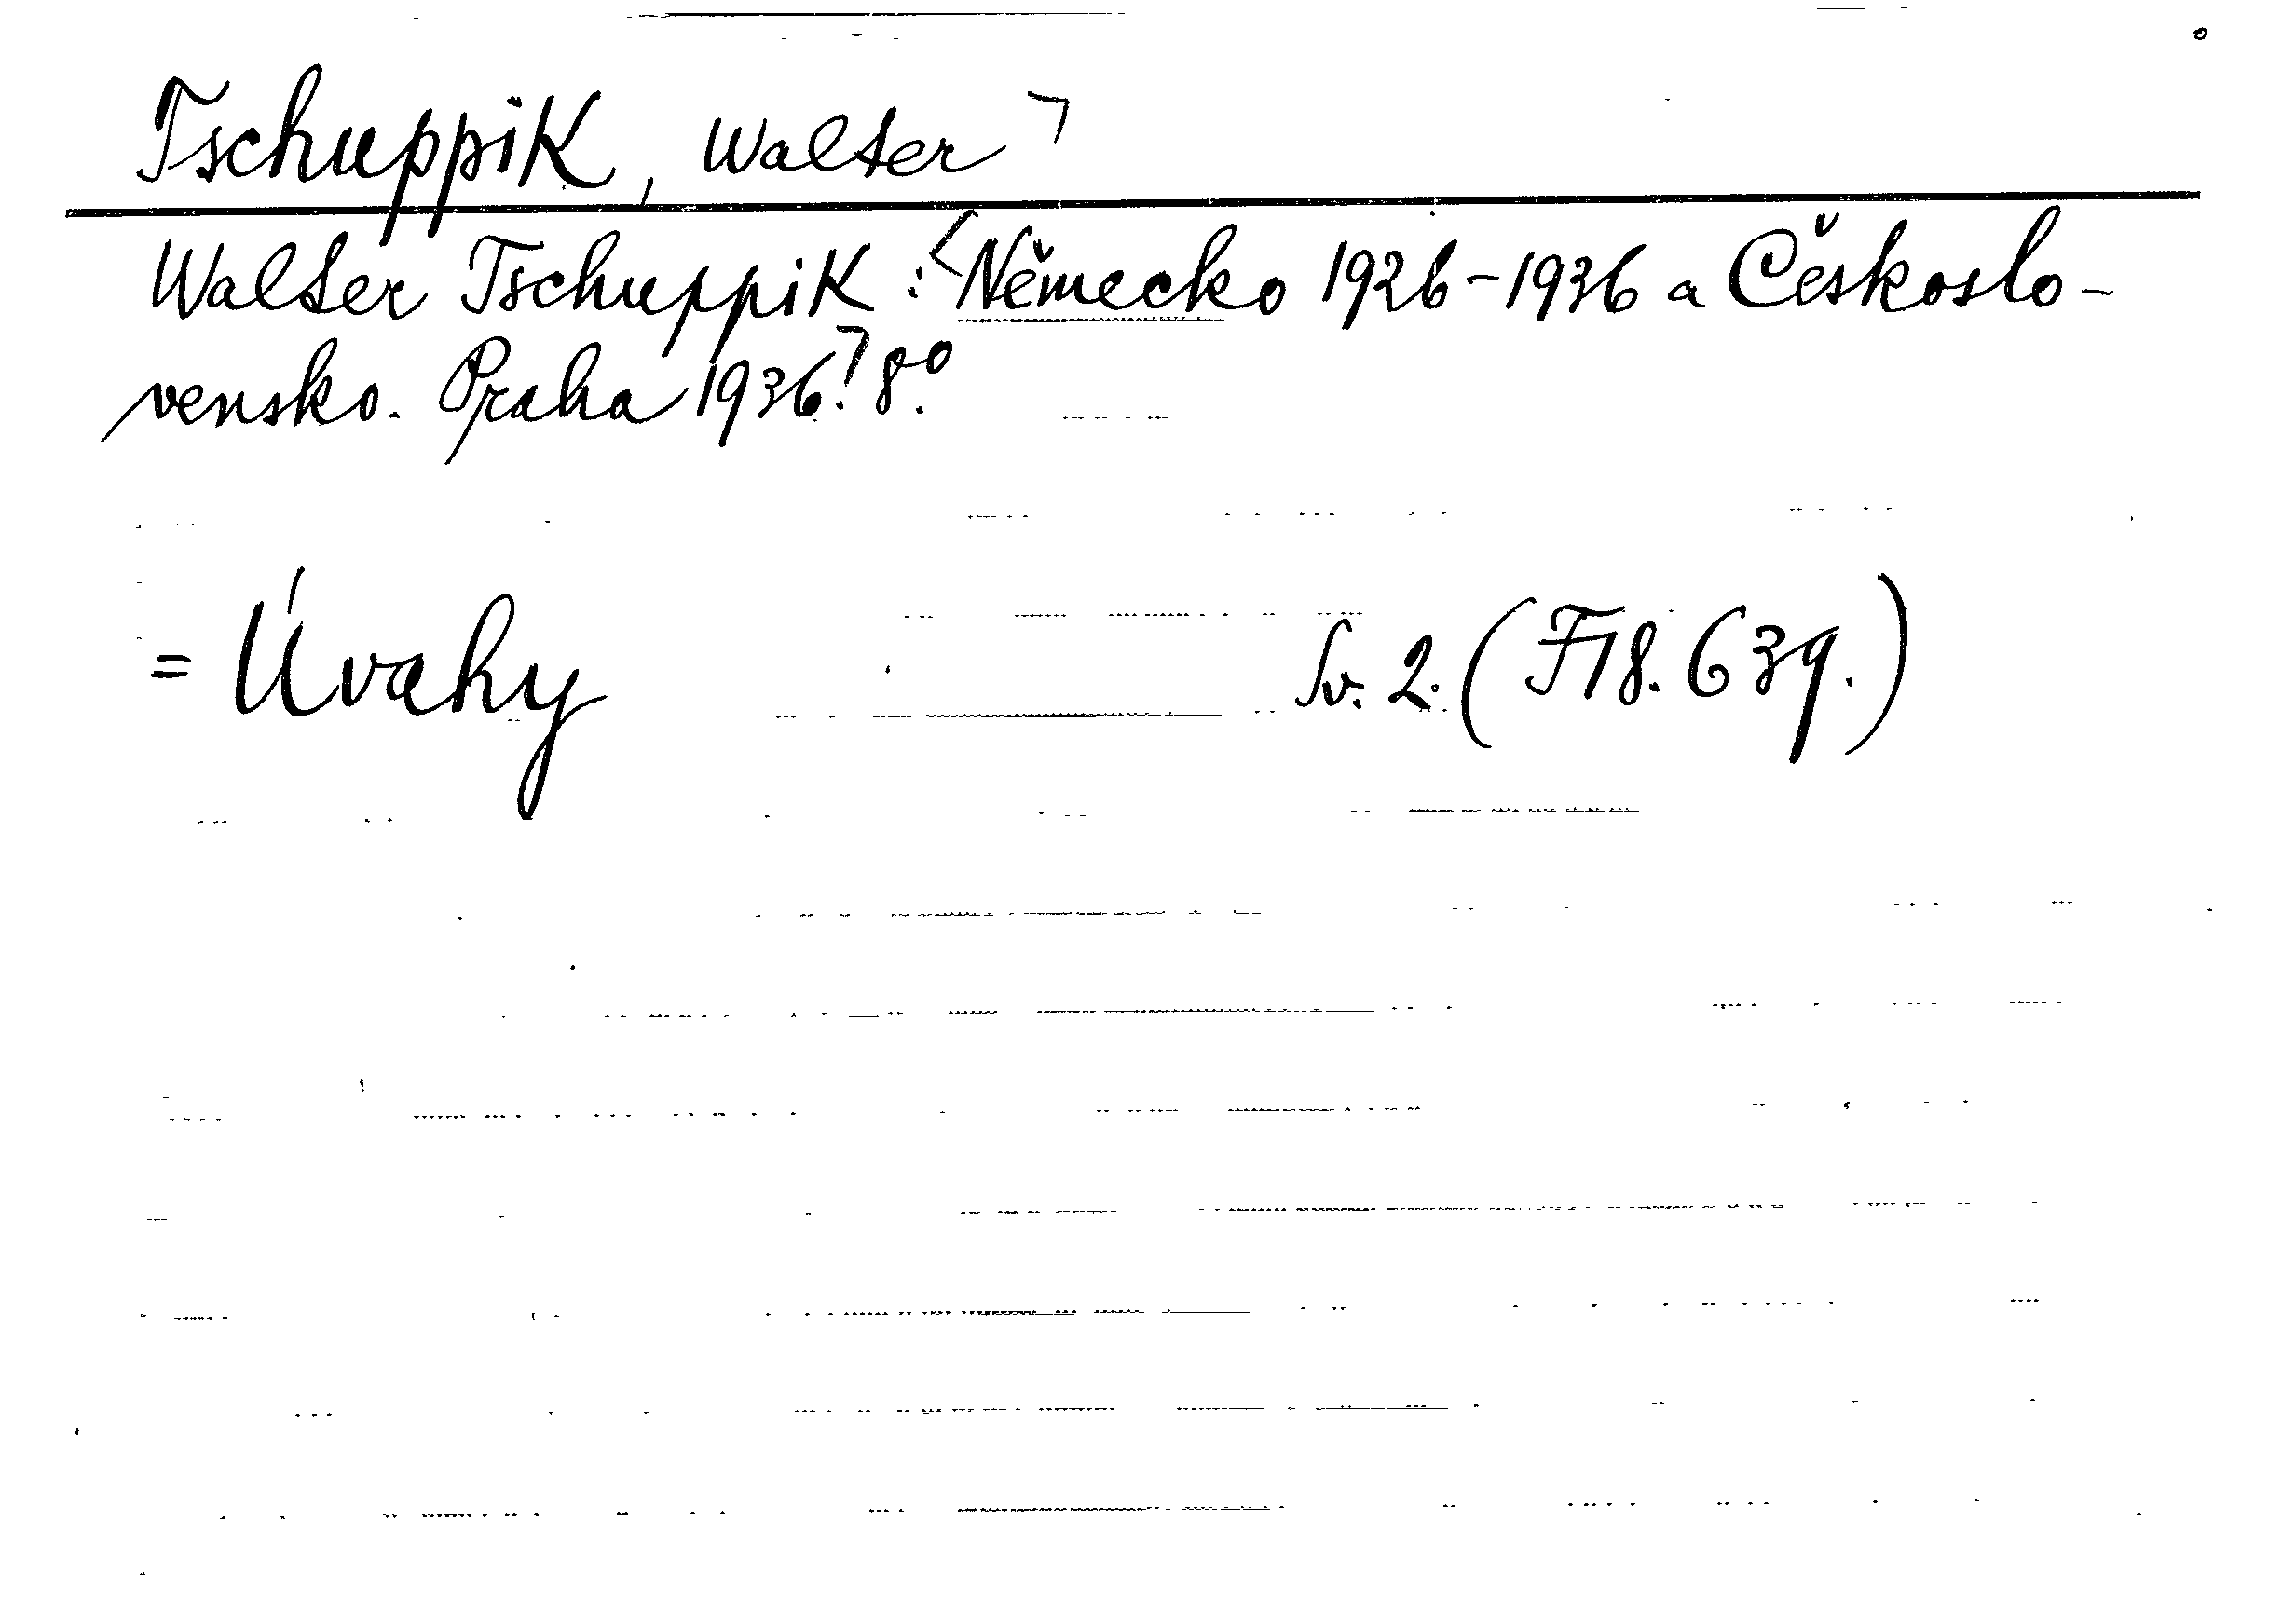 Tschuppik, Walter
Walter Tschuppik: Německo 1926-1936 a Českoslo-
vensko. Praha 1936. 8°.
= Úvahy Sv. 2. (F 18.639.)